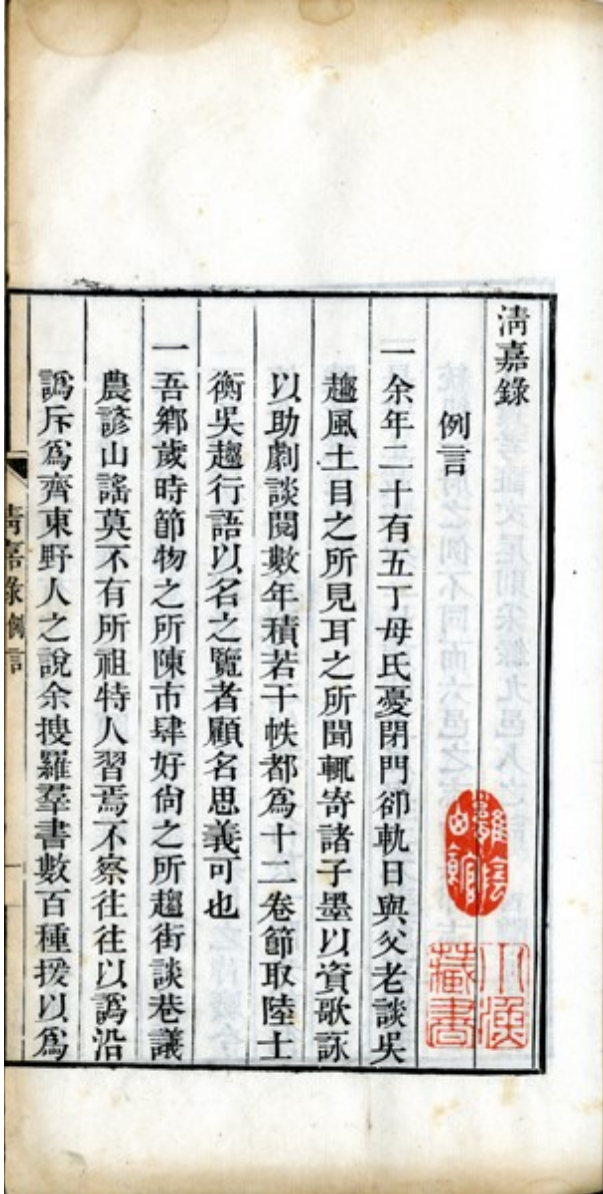 清嘉錄
例言
一余年二十有五丁母氏憂閉門卻軌日與父老談吳
趨風土目之所見耳之所聞輒寄諸子墨以資歌詠
以助劇談閱數年積若干帙都爲十二卷節取陸士
衡吳趨行語以名之覽者顧名思義可也
一吾鄉歲時節物之所陳市肆好尙之所趨街談巷議
農諺山謠莫不有所祖特人習焉不察往往以譌沿
譌斥爲齊東野人之說余搜羅羣書數百種援以爲
清嘉錄例言
一
小漁
藏書